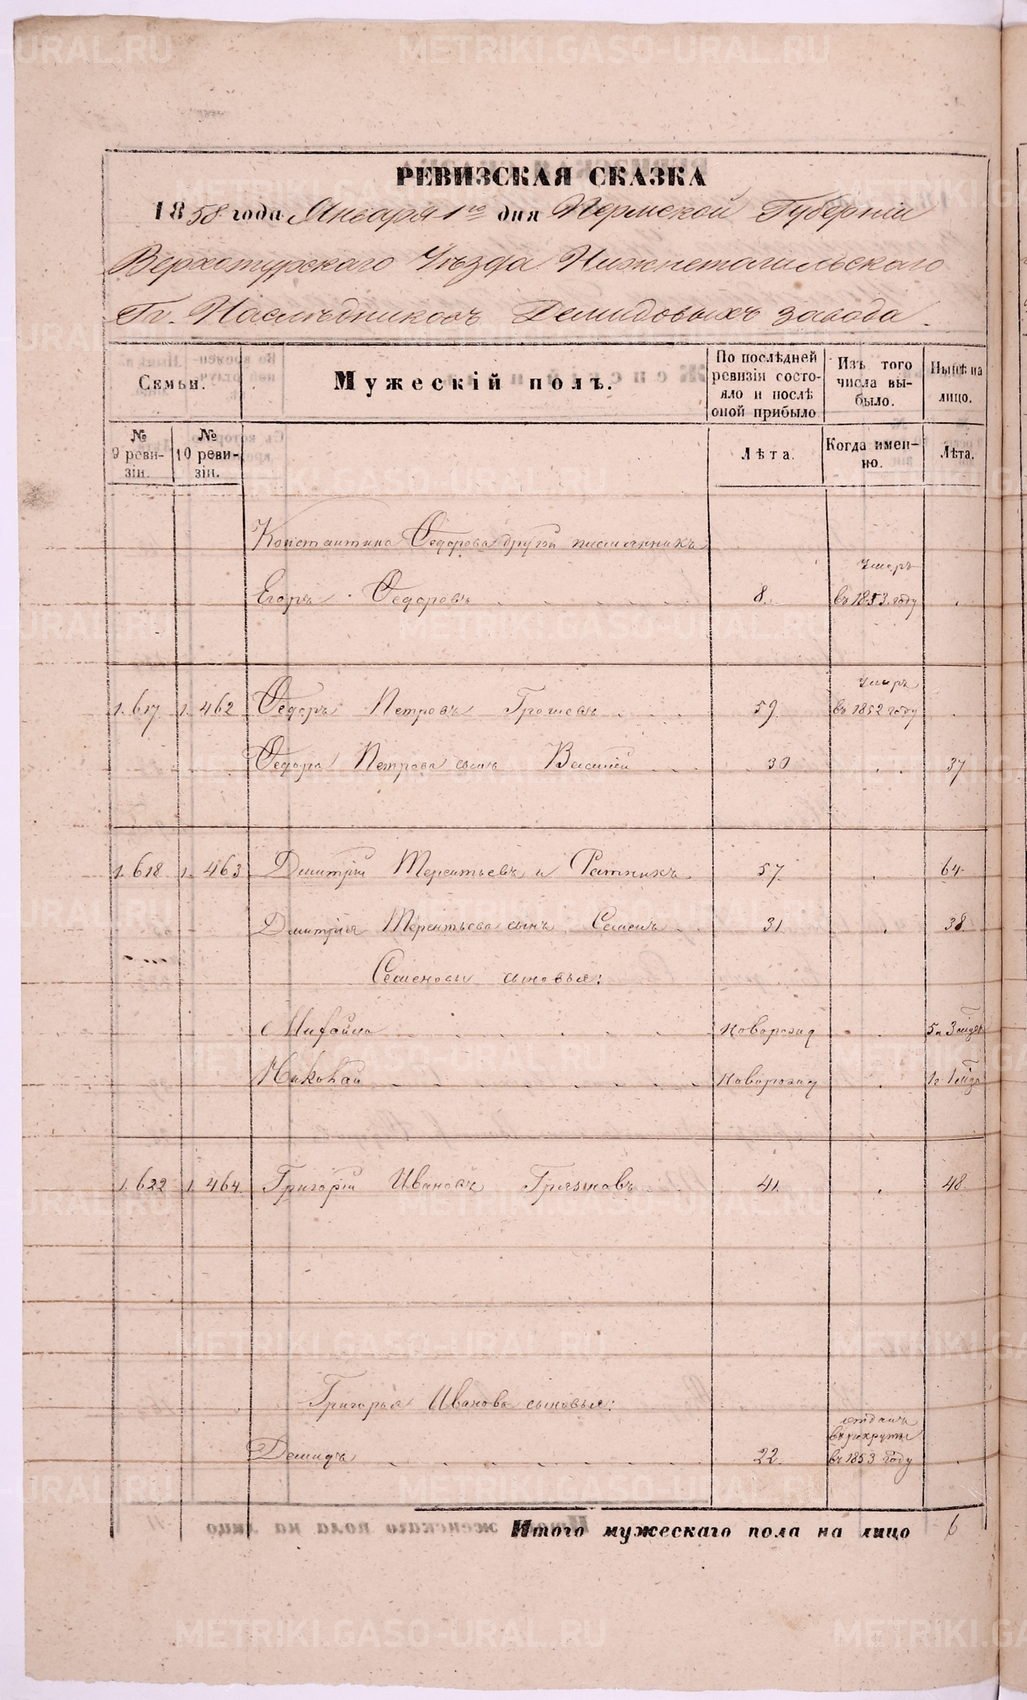 METRIKI.GASO-URAL.RU
РЕВИЗСКАЯ СКАЗКА
1858 года Января 1го дня Пермской Губерніи
Верхотурскаго Уѣзда Нижнетагильскаго
Гг. Наслѣдниковъ Демидовыхъ завода.
Семьи.
Мужескій полъ.
По послѣдней ревизіи состояло и послѣ оной прибыло
Изъ того числа выбыло.
Нынѣ на лицо.
№ 9 ревизіи.
№ 10 ревизіи.
Лѣта.
Когда именно.
Лѣта.
Константина Ѳедорова другой племянникъ
Егоръ Ѳедоровъ 8. умеръ въ 1853 году
1. 617 1. 462 Ѳедоръ Петровъ 59. умеръ въ 1852 году
Ѳедора Петрова сынъ Василій 30 37
1. 618 1. 463 Дмитрій Терентьевъ 57 64
Дмитрія Терентьева сынъ Семенъ 31 38
Семеновы сыновья:
новорожд
Николай новорожд
1. 622 1. 464 Григорій Ивановъ Грязновъ 41. 48
Григорья Иванова сыновья:
Демидъ 22. отданъ въ рекруты въ 1853 году
Итого мужескаго пола на лицо 6